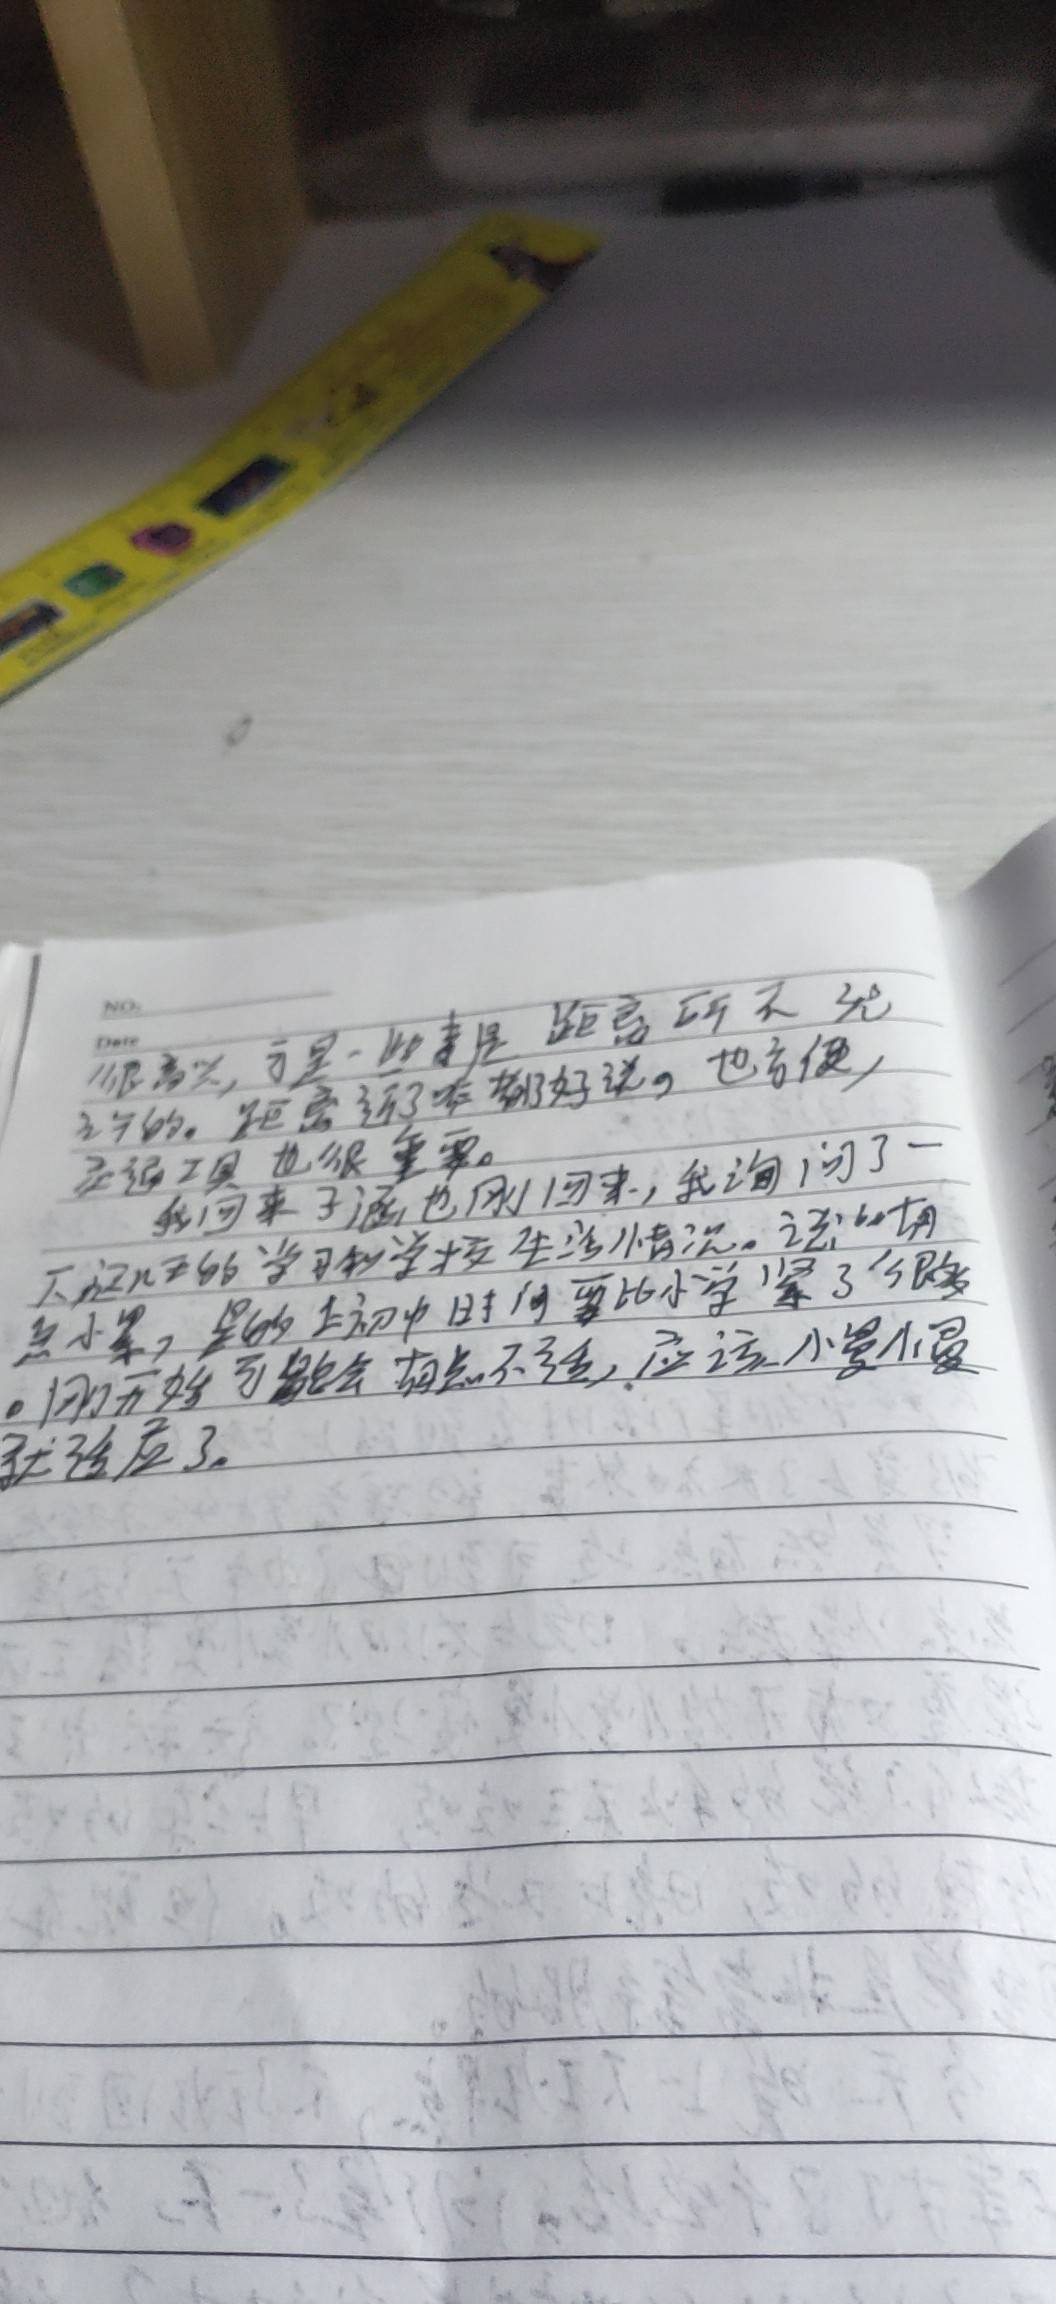 NO.
Date
很高兴,可是一些事是距离所不允
许的。距离近了咋都好说。也方便,
交通工具也很重要。
我回来子涵也刚回来,我询问了一
下这几天的学习和学校生活情况。说的有
点小累,是的上初中时间要比小学紧了很多
。刚开始可能会有点不适,应该慢慢
就适应了。